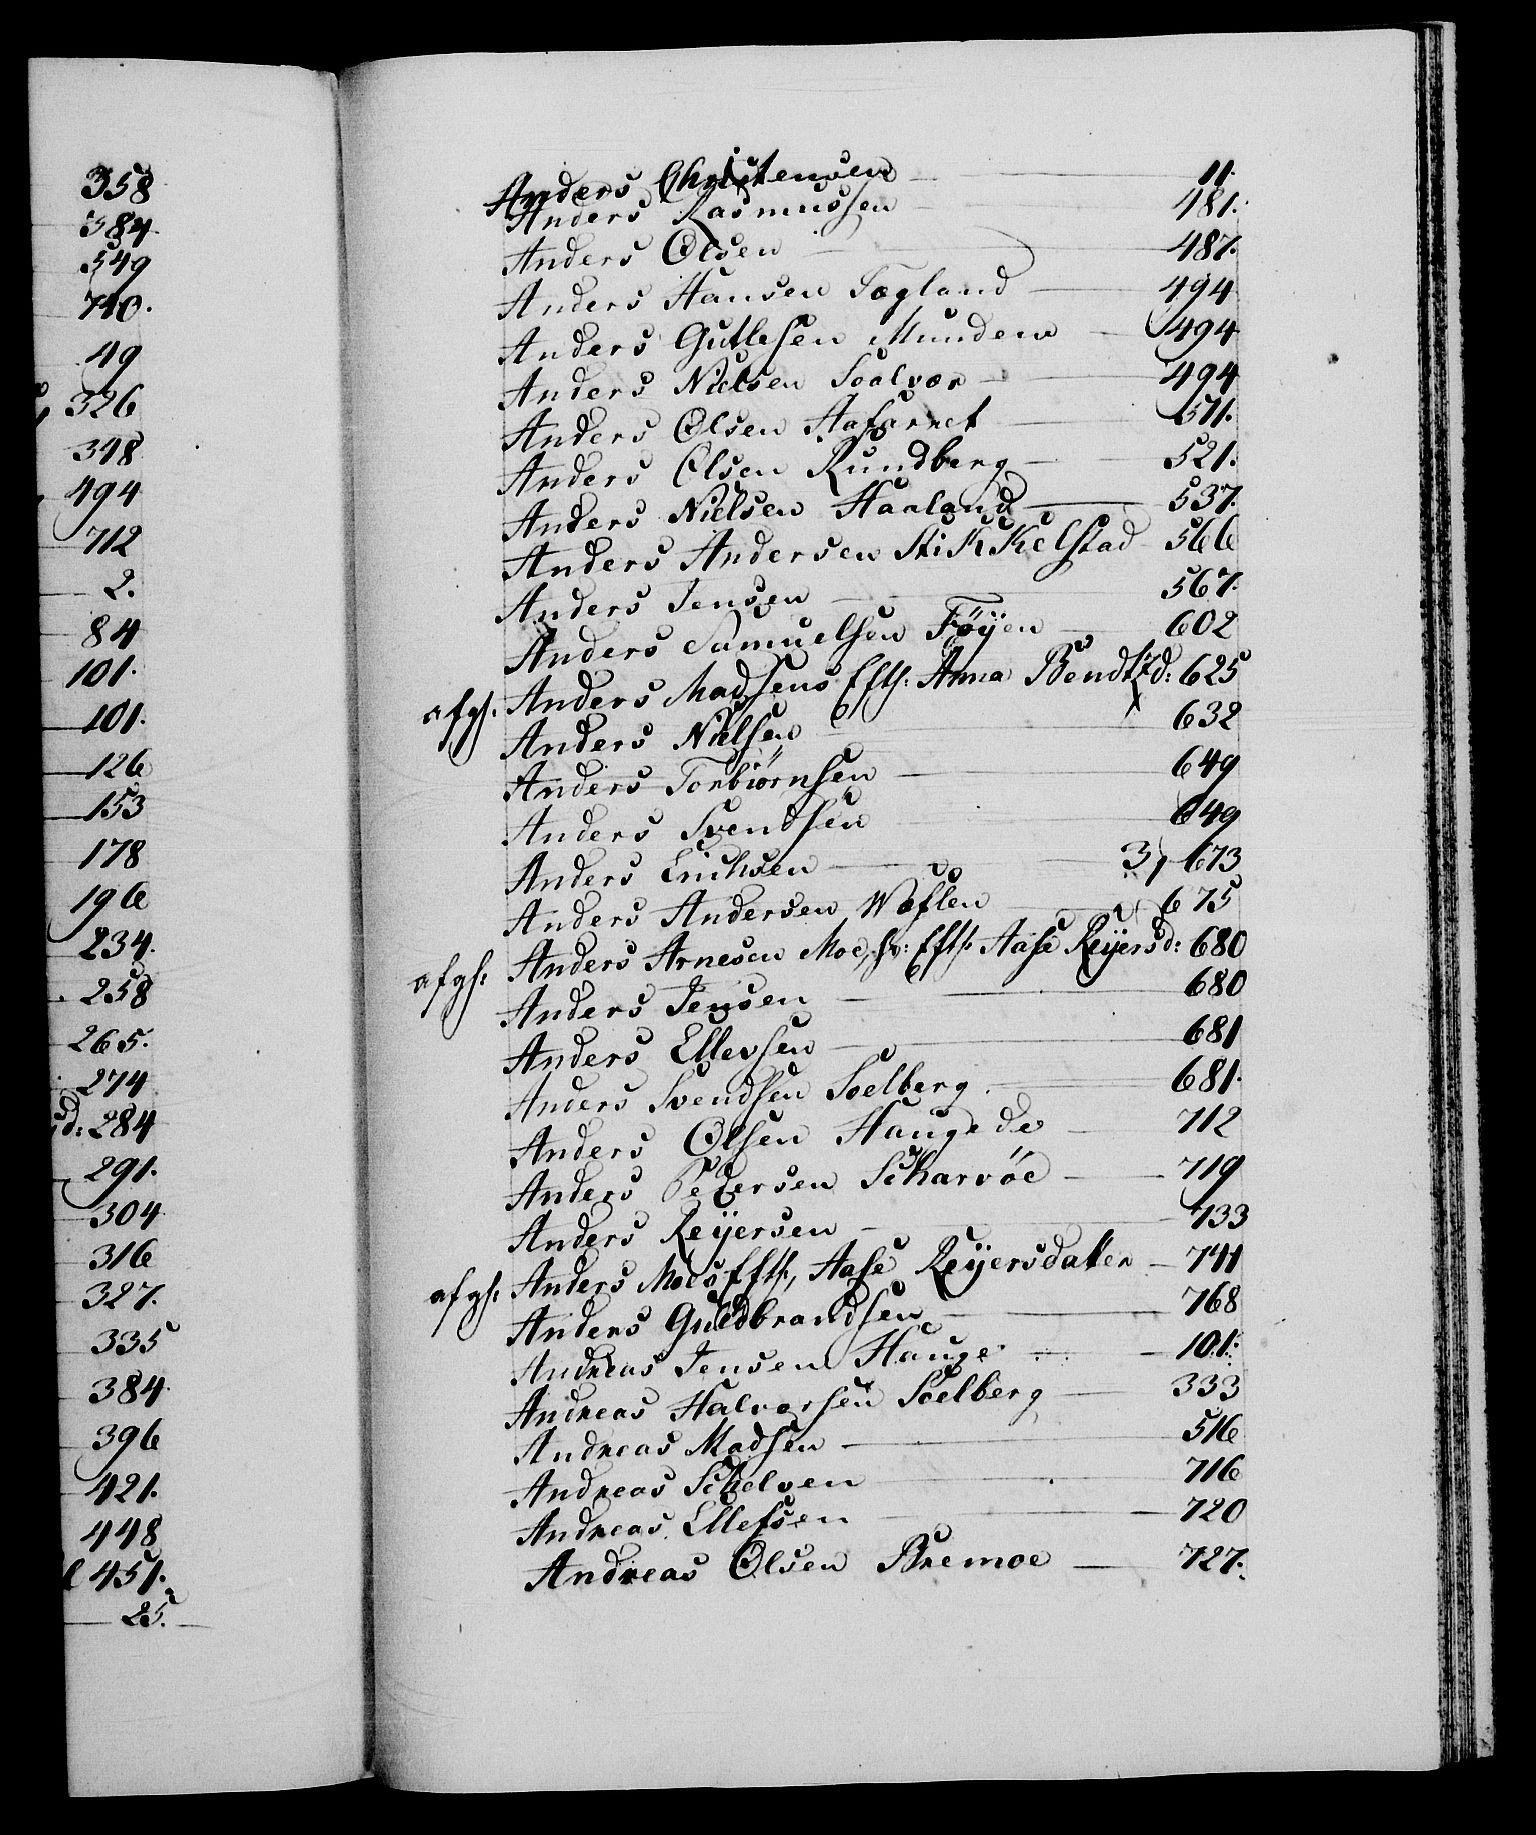 358
384
549
740.
49
326
348
494
712
2.
84
101.
101.
126
153
178
196
234.
258
265.
274
d: 284
291.
304
316
327.
335
384
396
421.
448
451.
25.
Anders Christensen 11.
Anders Rasmussen 481.
Anders Olsen 487.
Anders Hansen Fogland 494
Anders Gutlesen Munden 494
Anders Nielsen Soelvor 494
Anders Olsen 511.
Anders Olsen Rundberg 521.
Anders Nielsen Haaland 537.
Anders Andersen StiKKelstad 566
Anders Jensen 567.
Anders Samuelsen Föÿen 602
afgh. Anders Madsens Efth: Anna Bendtzd: 625
Anders Nielsen 632
Anders Torbiörnsen 649
Anders Svendsen 649
Anders Erichsen 3, 673
Anders Andersen Woflen 675
afgh: Anders Arnesen Moe, hs: Efth: Aase Reÿersd: 680
Anders Jensen 680
Anders Ellevsen 681
Anders Svendsen Soelberg 681.
Anders Olsen Haugede 712
Anders Pedersen Scharvöe 719
Anders Reÿersen 733
afgh: Anders Moes Efth, Aase Reÿersdatter 741
Anders Guldbrandsen 768
Andreas Jensen Hauge 101.
Andreas Halvorsen Soelberg 333
Andreas Madsen 516
Andreas Schelven 716
Andreas Ellefsen 720
Andreas Olsen Bremoe 727.